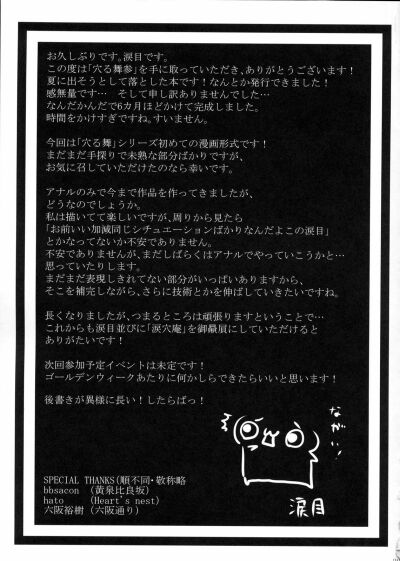 お久しぶりです。涙目です。
この度は「穴る舞参」を手に取っていただき、ありがとうございます！
夏に出そうとして落とした本です！なんとか発行できました！
感無量です…　そして申し訳ありませんでした…
なんだかんだで6カ月ほどかけて完成しました。
時間をかけすぎですね。すいません。
今回は「穴る舞」シリーズ初めての漫画形式です！
まだまだ手探りで未熟な部分ばかりですが、
お気に召していただけたのなら幸いです。
アナルのみで今まで作品を作ってきましたが、
どうなのでしょうか。
私は描いてて楽しいですが、周りから見たら
「お前いい加減同じシチュエーションばかりなんだよこの涙目」
とかなってないか不安でありません。
不安でありませんが、まだしばらくはアナルでやっていこうかと…
思っていたりします。
まだまだ表現しきれてない部分がいっぱいありますから、
そこを補完しながら、さらに技術とかを伸ばしていきたいですね。
長くなりましたが、つまるところは頑張りますということで…
これからも涙目並びに「涙穴庵」を御贔屓にしていただけると
ありがたいです！
次回参加予定イベントは未定です！
ゴールデンウィークあたりに何かしらできたらいいと思います！
後書きが異様に長い！したらばっ！
ながい！
涙目
SPECIAL THANKS(順不同・敬称略
bbsacon　(黄泉比良坂)
hato　(Heart's nest)
六阪裕樹（六阪通り）